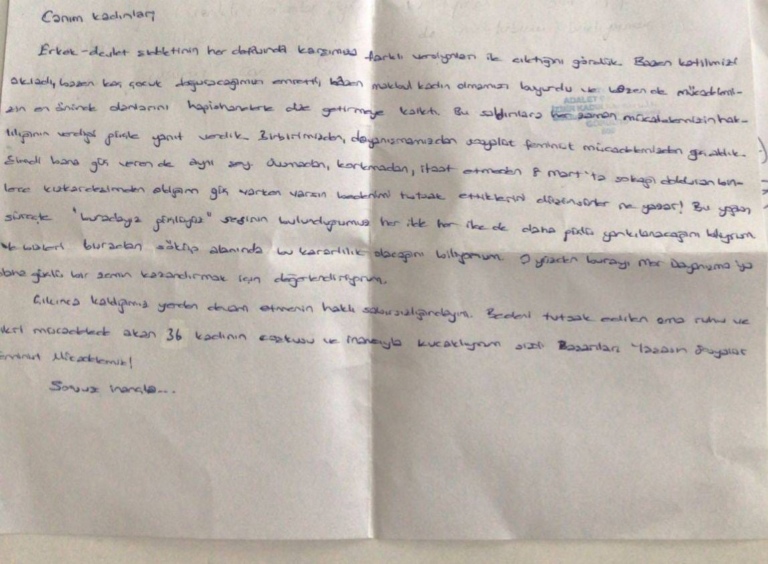 Canım kadınlar,
Erkek-devlet şiddetinin her defasında karşımıza farklı versiyonları ile çıktığını gördük. Bazen katilimizi
akladı, bazen kaç çocuk doğuracağımızı emretti, bazen makbul kadın olmamızı buyurdu ve bazen de mücadelemi-
zin en önünde olanlarını hapishanelerle diz getirmeye kalktı. Bu saldırılara her zaman mücadelemizin hak-
lılığının verdiği güçle yanıt verdik. Birbirimizden, dayanışmamızdan sosyalist feminist mücadelemizden güç aldık.
Şimdi bana güç veren de aynı şey. Susmadan, korkmadan, itaat etmeden 8 Mart'ta sokağı dolduran bin-
lerce kızkardeşimden aldığım güç varken varsın bedenimi tutsak ettiklerini düşünsünler ne yazar! Bu yaşanan
süreçte "buradayız güçlüyüz" sesinin bulunduğumuz her ilde her ilçede daha güçlü yankılanacağını biliyorum
bizleri buradan söküp alanında bu kararlılık olacağını biliyorum. O yüzden burayı Mor Dayanışma'ya
daha güçlü bir zemin kazandırmak için değerlendiriyorum.
Çıkınca kaldığımız yerden devam etmenin haklı sabırsızlığındayım. Bedeni tutsak edilen ama ruhu ve
mücadelede akan 36 kadının coşkusu ve inancıyla kucaklıyorum sizi. Yaşasın Sosyalist
Feminist Mücadelemiz!
Sonsuz inançla...